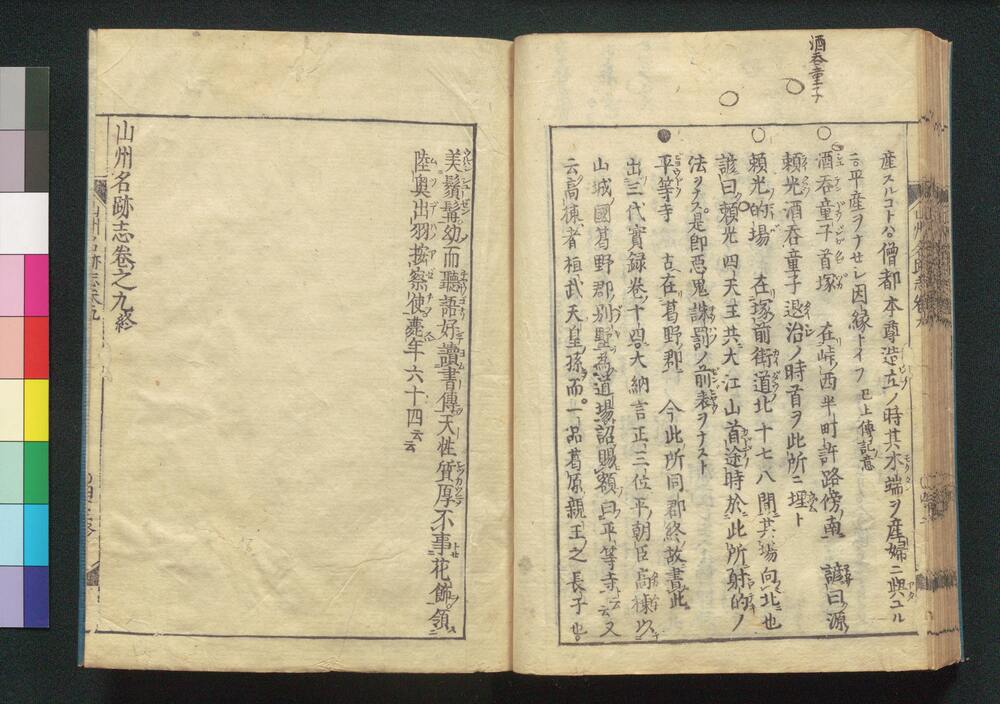 酒呑童子
産スルコトハ僧都本尊造立ノ時其木端ヲ産婦ニ與ユル
ニ平産ヲナセレ因縁トイフ 已上傳記意
酒呑童子首塚 在峠西半町許路傍南 諺曰源
頼光酒呑童子退治ノ時首ヲ此所ニ埋ト
頼光的場 在塚前街道北十七八間其場向北也
諺曰頼光四天王共大江山首途時於此所射的ノ
法ヲナス是即悪鬼誅罰ノ前表ヲナスト
平等寺 古在葛野郡 今此所同郡終故書此
出三代實録卷十四大納言正三位平朝臣高棟以
山城國葛野郡別墅為道場詔賜額曰平等寺云又
云高棟者桓武天皇孫而一品葛原親王之長子也
美鬚髯幼而聽語好讀書傳天性質厚不事花飾領
陸奥出羽按察使薨年六十四云云
山州名跡志卷之九終